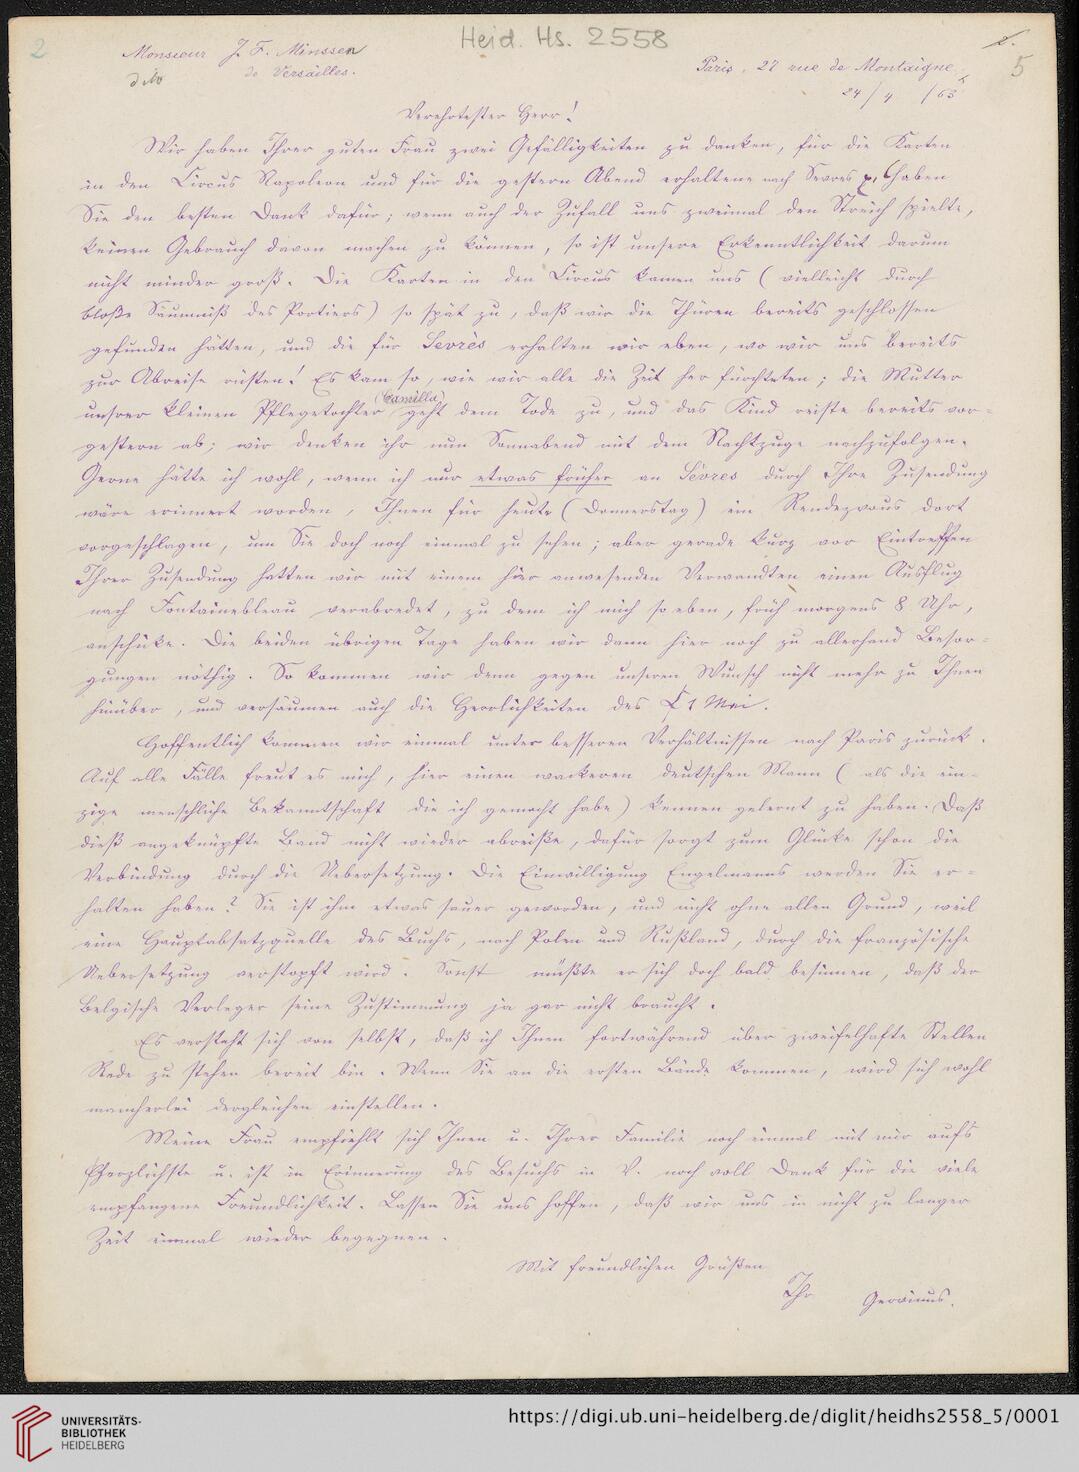 2
Heid. Hs. 2558
5
Monsieur J. F. Minssen
dito de Versailles.
Paris, 27 rue de Montaigne
24/4 /63
Verehrtester Herr!
Wir haben Ihrer guten Frau zwei Gefälligkeiten zu danken, für die Karten
in den Circus Napoleon und für die gestern Abend erhaltene nach Sevres. Haben
Sie den besten Dank dafür; wenn auch der Zufall uns zweimal den Streich spielte,
keinen Gebrauch davon machen zu können, so ist unsere Erkenntlichkeit darum
nicht minder groß. Die Karten in den Circus kamen uns (vielleicht durch
bloße Säumniß des Portiers) so spät zu, daß wir die Thüren bereits geschlossen
gefunden hätten, und die für Sevrès erhalten wir eben, wo wir uns bereits
zur Abreise rüsten! Es kam so, wie wir alle die Zeit her fürchteten; die Mutter
unsrer kleinen Pflegetochter (Camilla) geht dem Tode zu, und das Kind reiste bereits vor-
gestern ab; wir denken ihr nun Sonnabend mit dem Nachtzuge nachzufolgen.
Gerne hätte ich wohl, wenn ich nur etwas früher an Sèvres durch Ihre Zusendung
wäre erinnert worden, Ihnen für heute (Donnerstag) ein Rendezvous dort
vorgeschlagen, um Sie doch noch einmal zu sehen; aber gerade kurz vor Eintreffen
Ihrer Zusendung hatten wir mit einem hier anwesenden Verwandten einen Ausflug
nach Fontainebleau verabredet, zu dem ich mich so eben, früh morgens 8 Uhr,
anschicke. Die beiden übrigen Tage haben wir dann hier noch zu allerhand Besor-
gungen nöthig. So kommen wir denn gegen unseren Wunsch nicht mehr zu Ihnen
hinüber, und versäumen auch die Herrlichkeiten des 1 Mai.
Hoffentlich kommen wir einmal unter besseren Verhältnissen nach Paris zurück.
Auf alle Fälle freut es mich, hier einen wackeren deutschen Mann (als die ein-
zige menschliche Bekanntschaft die ich gemacht habe) kennen gelernt zu haben. Daß
dieß angeknüpfte Band nicht wieder abreiße, dafür sorgt zum Glücke schon die
Verbindung durch die Uebersetzung. Die Einwilligung Engelmanns werden Sie er-
halten haben? Sie ist ihm etwas sauer geworden, und nicht ohne allen Grund, weil
eine Hauptabsatzquelle des Buchs, nach Polen und Rußland, durch die französische
Uebersetzung verstopft wird. Sonst müßte er sich doch bald besinnen, daß der
Belgische Verleger seine Zustimmung ja gar nicht braucht.
Es versteht sich von selbst, daß ich Ihnen fortwährend über zweifelhafte Stellen
Rede zu stehen bereit bin. Wenn Sie an die ersten Bände kommen, wird sich wohl
mancherlei dergleichen einstellen.
Meine Frau empfiehlt sich Ihnen u. Ihrer Familie noch einmal mit mir aufs
Herzlichste u. ist in Erinnerung des Besuchs in V. noch voll Dank für die viele
empfangene Freundlichkeit. Lassen Sie uns hoffen, daß wir uns in nicht zu langer
Zeit einmal wieder begegnen.
Mit freundlichen Grüßen
Ihr Gervinus.
UNIVERSITÄTS-
BIBLIOTHEK
HEIDELBERG
https://digi.ub.uni-heidelberg.de/diglit/heidhs2558_5/0001